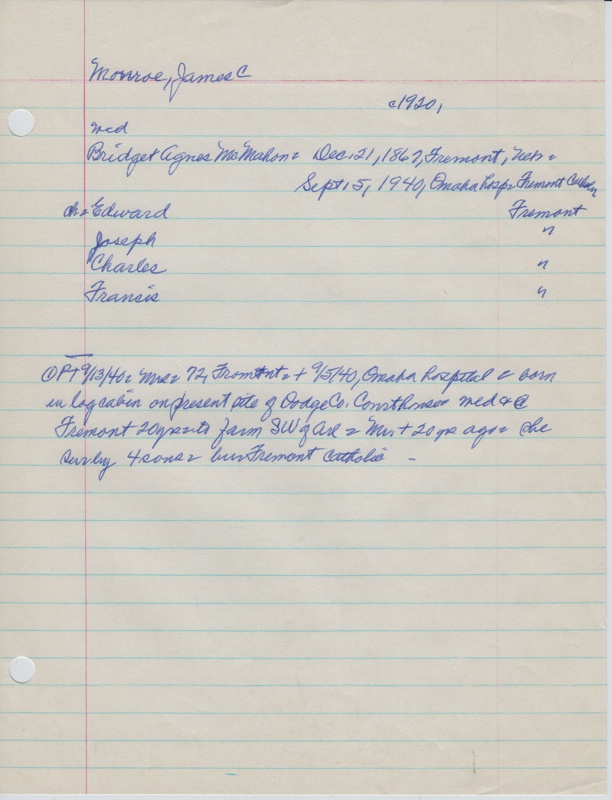 Monroe, James C
c1920,
md
Bridget Agnes McMahon = Dec. 21, 1867, Fremont, Neb =
Sept. 5, 1940, Omaha hosp = Fremont
ch = Edward Fremont
Joseph "
Charles "
Francis "
9/13/40 = Mrs = 72, Fremont = + 9/5/40, Omaha hospital = born
in log cabin on present site of Dodge Co. Courthouse = med
Fremont 20 yrs = to farm SW of = Mr + 20 yrs ago = she
sur by 4 sons = bur Fremont Catholic -